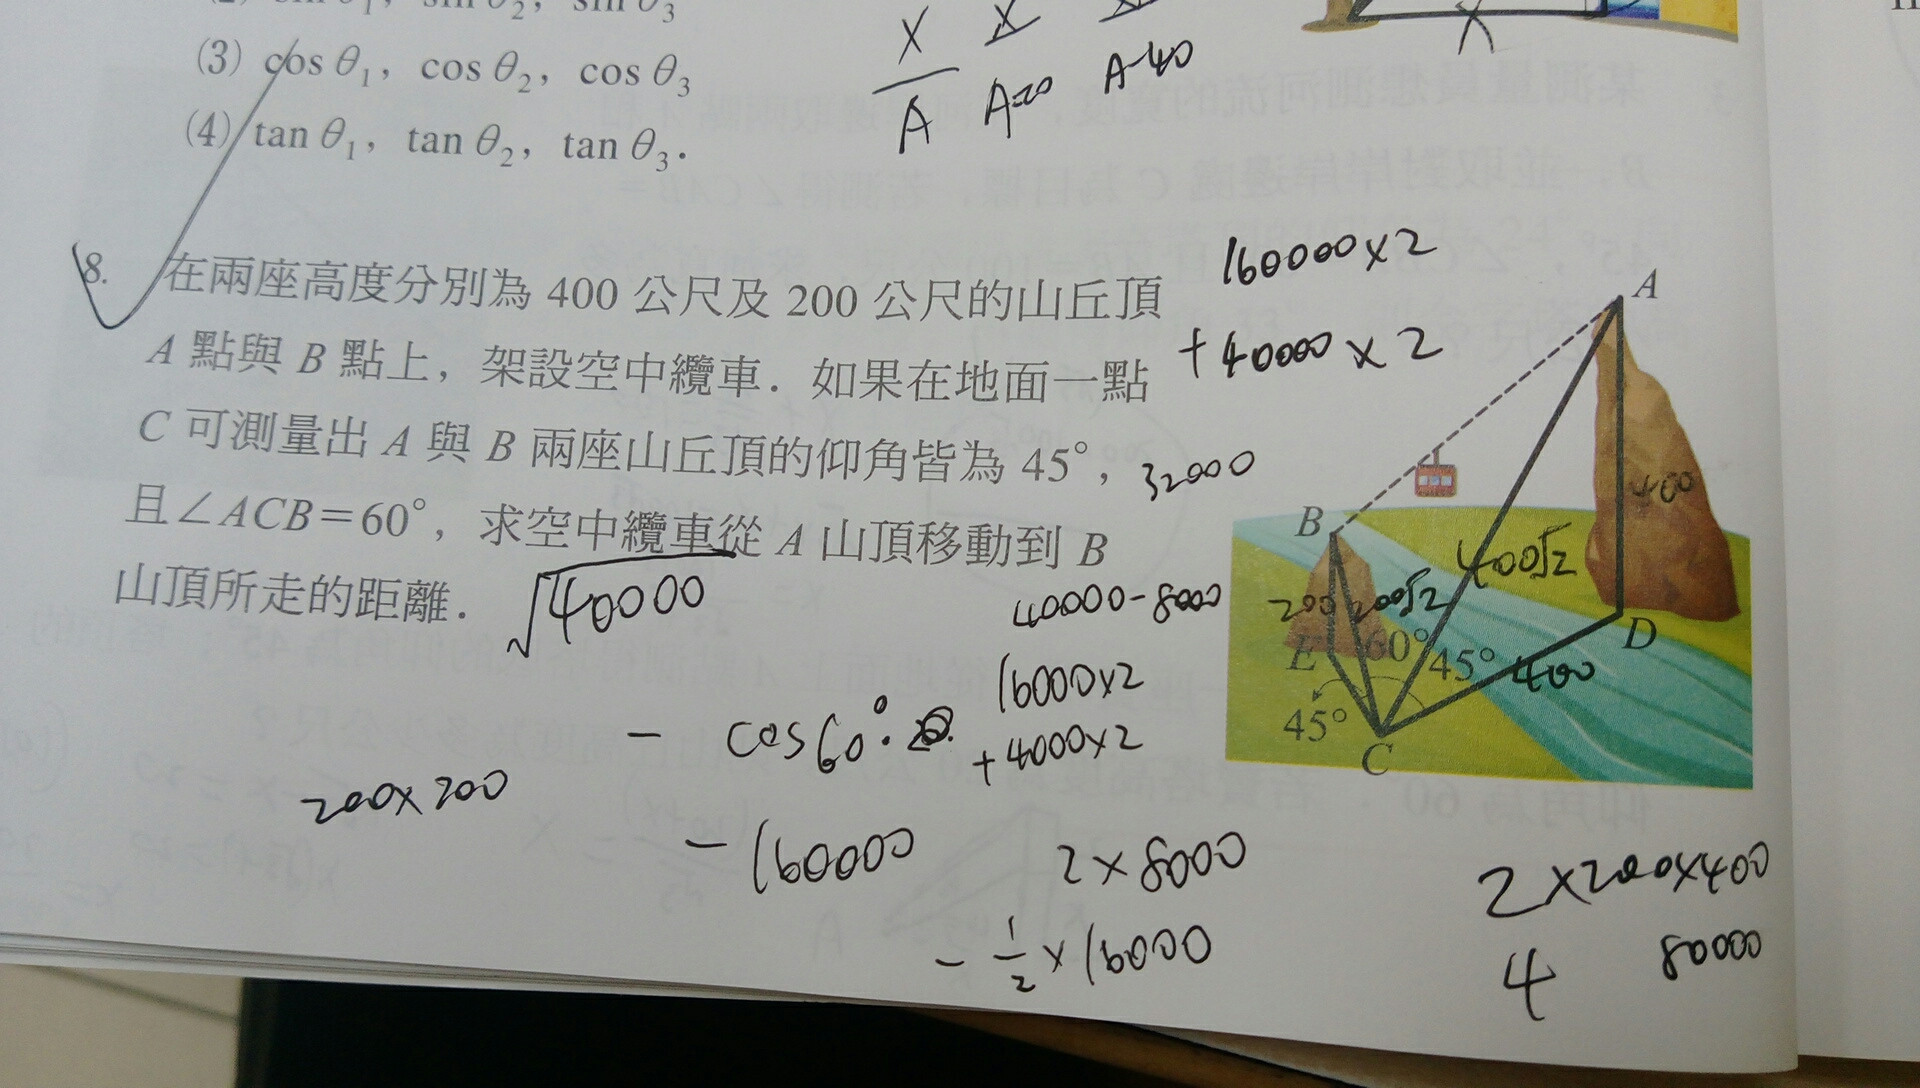 (3) cos θ₁, cos θ₂, cos θ₃
(4) tan θ₁, tan θ₂, tan θ₃.
X
A
A-20
A-40
X
8. 在兩座高度分別為 400 公尺及 200 公尺的山丘頂
A 點與 B 點上，架設空中纜車．如果在地面一點
C 可測量出 A 與 B 兩座山丘頂的仰角皆為 45°，
且∠ACB＝60°，求空中纜車從 A 山頂移動到 B
山頂所走的距離．
160000×2
+40000×2
32000
√40000
40000-8000
16000×2
+4000×2
- cos60°·
200×200
-160000
2×8000
- 1/2 ×16000
2×200×400
4
80000
A
B
400
400√2
200
200√2
E
60°
45°
400
D
45°
C